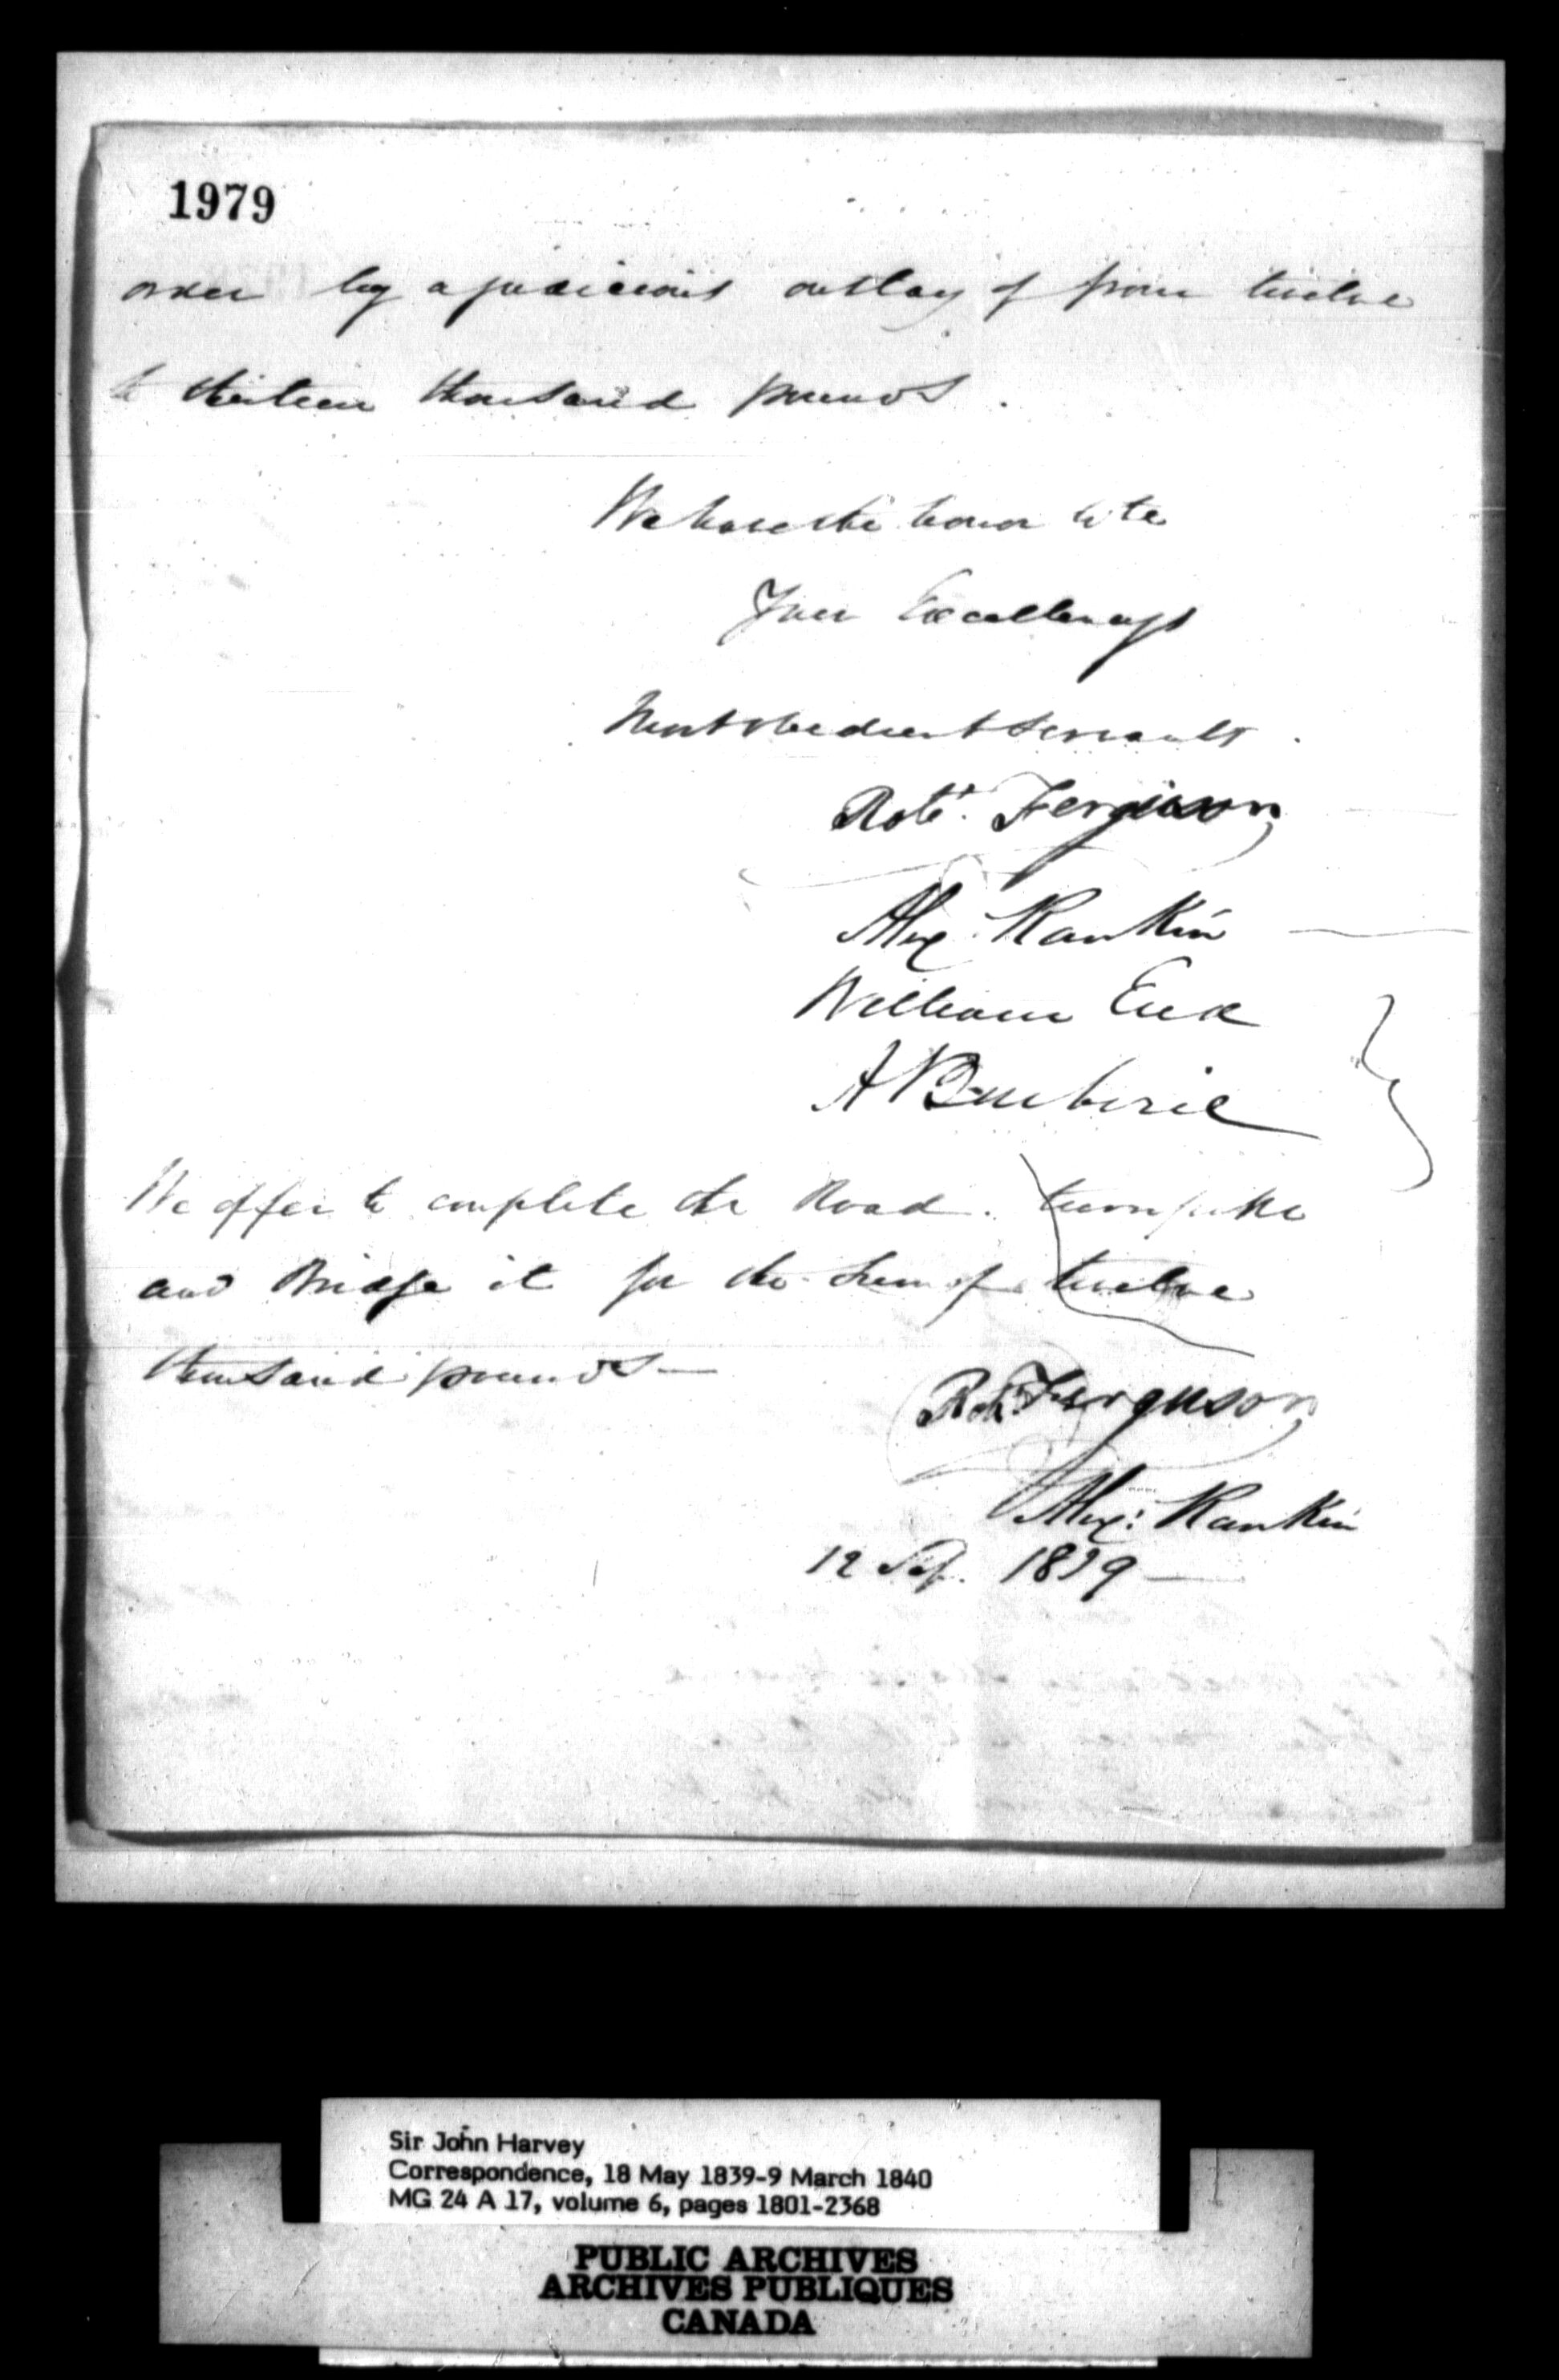 1979
order by a judicious outlay of from twelve
to thirteen thousand pounds.
We have the honor to be
Your Excellencys
Most obedient Servants.
Robt. Ferguson
Alex: Rankin
William End
A
We offer to complete the Road. turnpike
and Bridge it for the sum of twelve
thousand pounds—
Robt. Ferguson
Alex: Rankin
12 Sep. 1839—
Sir John Harvey
Correspondence, 18 May 1839-9 March 1840
MG 24 A 17, volume 6, pages 1801-2368
PUBLIC ARCHIVES
ARCHIVES PUBLIQUES
CANADA